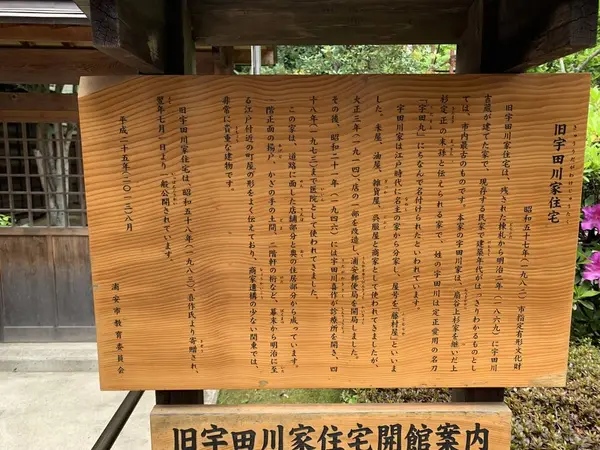 旧宇田川家住宅
きゅううだがわけじゅうたく
昭和五十七年(一九八二)市指定有形文化財
旧宇田川家住宅は、残された棟札から明治二年(一八六九)に宇田川
吉蔵が建てた家で、現存する民家で建築年代がはっきりわかるものとし
ては、市内最古のものです。本家の宇田川家は、扇谷上杉家を継いだ上
杉定正の末孫と伝えられる家で、姓の宇田川は定正愛用の名刀
「宇田丸」にちなんで名付けられたといわれています。
宇田川家は江戸時代に名主の家から分家し、屋号を「藤村屋」といいま
した。米屋、油屋、雑貨屋、呉服屋と商家として使われてきましたが、
大正三年(一九一四)、店の一部を改造し、浦安郵便局を開局しました。
その後、昭和二十一年(一九四六)には宇田川喜作が診療所を開き、四
十八年(一九七三)まで医院として使われてきました。
この家は、道路に面した店舗部分と奥の住居部分から成っています。
一階正面の揚戸、かぎの手の土間、二階軒の桁など、幕末から明治に至
る江戸付近の町屋の形をよく伝えており、商家遺構の少ない関東では、
非常に貴重な建物です。
旧宇田川家住宅は、昭和五十八年(一九八三)、喜作氏より寄贈され、
翌年七月一日より一般公開されています。
平成二十五年(二〇一三)八月
浦安市教育委員会
旧宇田川家住宅開館案内